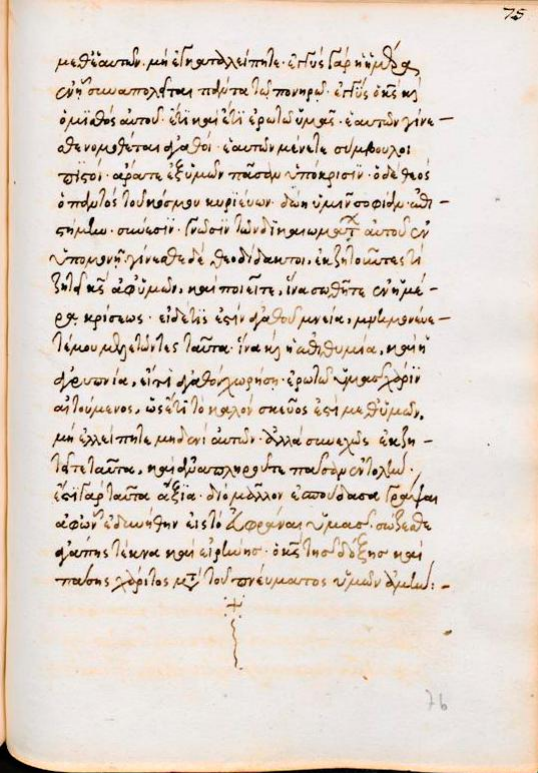 μεθ' ἑαυτῶν. μὴ ἐγκαταλλείπητε. ἐγγὺς γὰρ ἡ ἡμέρα
ἐν ᾗ συναπολεῖται πάντα τῷ πονηρῷ. ἐγγὺς ὁ κς καὶ
ὁ μισθὸς αὐτοῦ. ἔτι καὶ ἔτι ἐρωτῶ ὑμᾶς. ἑαυτῶν γίνε-
σθε νομοθέται ἀγαθοί. ἑαυτῶν μένετε σύμβουλοι
πιστοί. ἄρατε ἐξ ὑμῶν πᾶσαν ὑπόκρισιν. ὁ δὲ θεὸς
ὁ παντὸς τοῦ κόσμου κυριεύων. δώη ὑμῖν σοφίαν. ἐπι-
στήμην. σύνεσιν. γνῶσιν τῶν δικαιωμάτων αὐτοῦ ἐν
ὑπομονῇ. γίνεσθε δὲ θεοδίδακτοι, ἐκζητοῦντες τί
ζητεῖ κς ἀφ' ὑμῶν, καὶ ποιεῖτε, ἵνα σωθῆτε ἐν ἡμέ-
ρᾳ κρίσεως. εἰ δέ τις ἐστὶν ἀγαθοῦ μνεία, μνημονεύε-
τέ μου μελετῶντες ταῦτα. ἵνα καὶ ἡ ἐπιθυμία, καὶ ἡ
ἀγρυπνία, εἴς τι ἀγαθὸν χωρήσῃ. ἐρωτῶ ὑμᾶς χάριν
αἰτούμενος, ὡς ἔτι τὸ καλὸν σκεῦος ἐστὶ μεθ' ὑμῶν.
μὴ ἐλλείπητε μηδενὶ αὐτῶν. ἀλλὰ συνεχῶς ἐκζη-
τεῖτε ταῦτα, καὶ ἀναπληροῦτε πᾶσαν ἐντολήν.
ἔστι γὰρ ταῦτα ἄξια. διὸ μᾶλλον ἐσπούδασα γράψαι
ἀφ' ὧν ἐδυνήθην εἰς τὸ εὐφρᾶναι ὑμᾶς. σώζεσθε
ἀγάπης τέκνα καὶ εἰρήνης. ὁ κς τῆς δόξης καὶ
πάσης χάριτος μετὰ τοῦ πνεύματος ὑμῶν ἀμήν:-
75
76